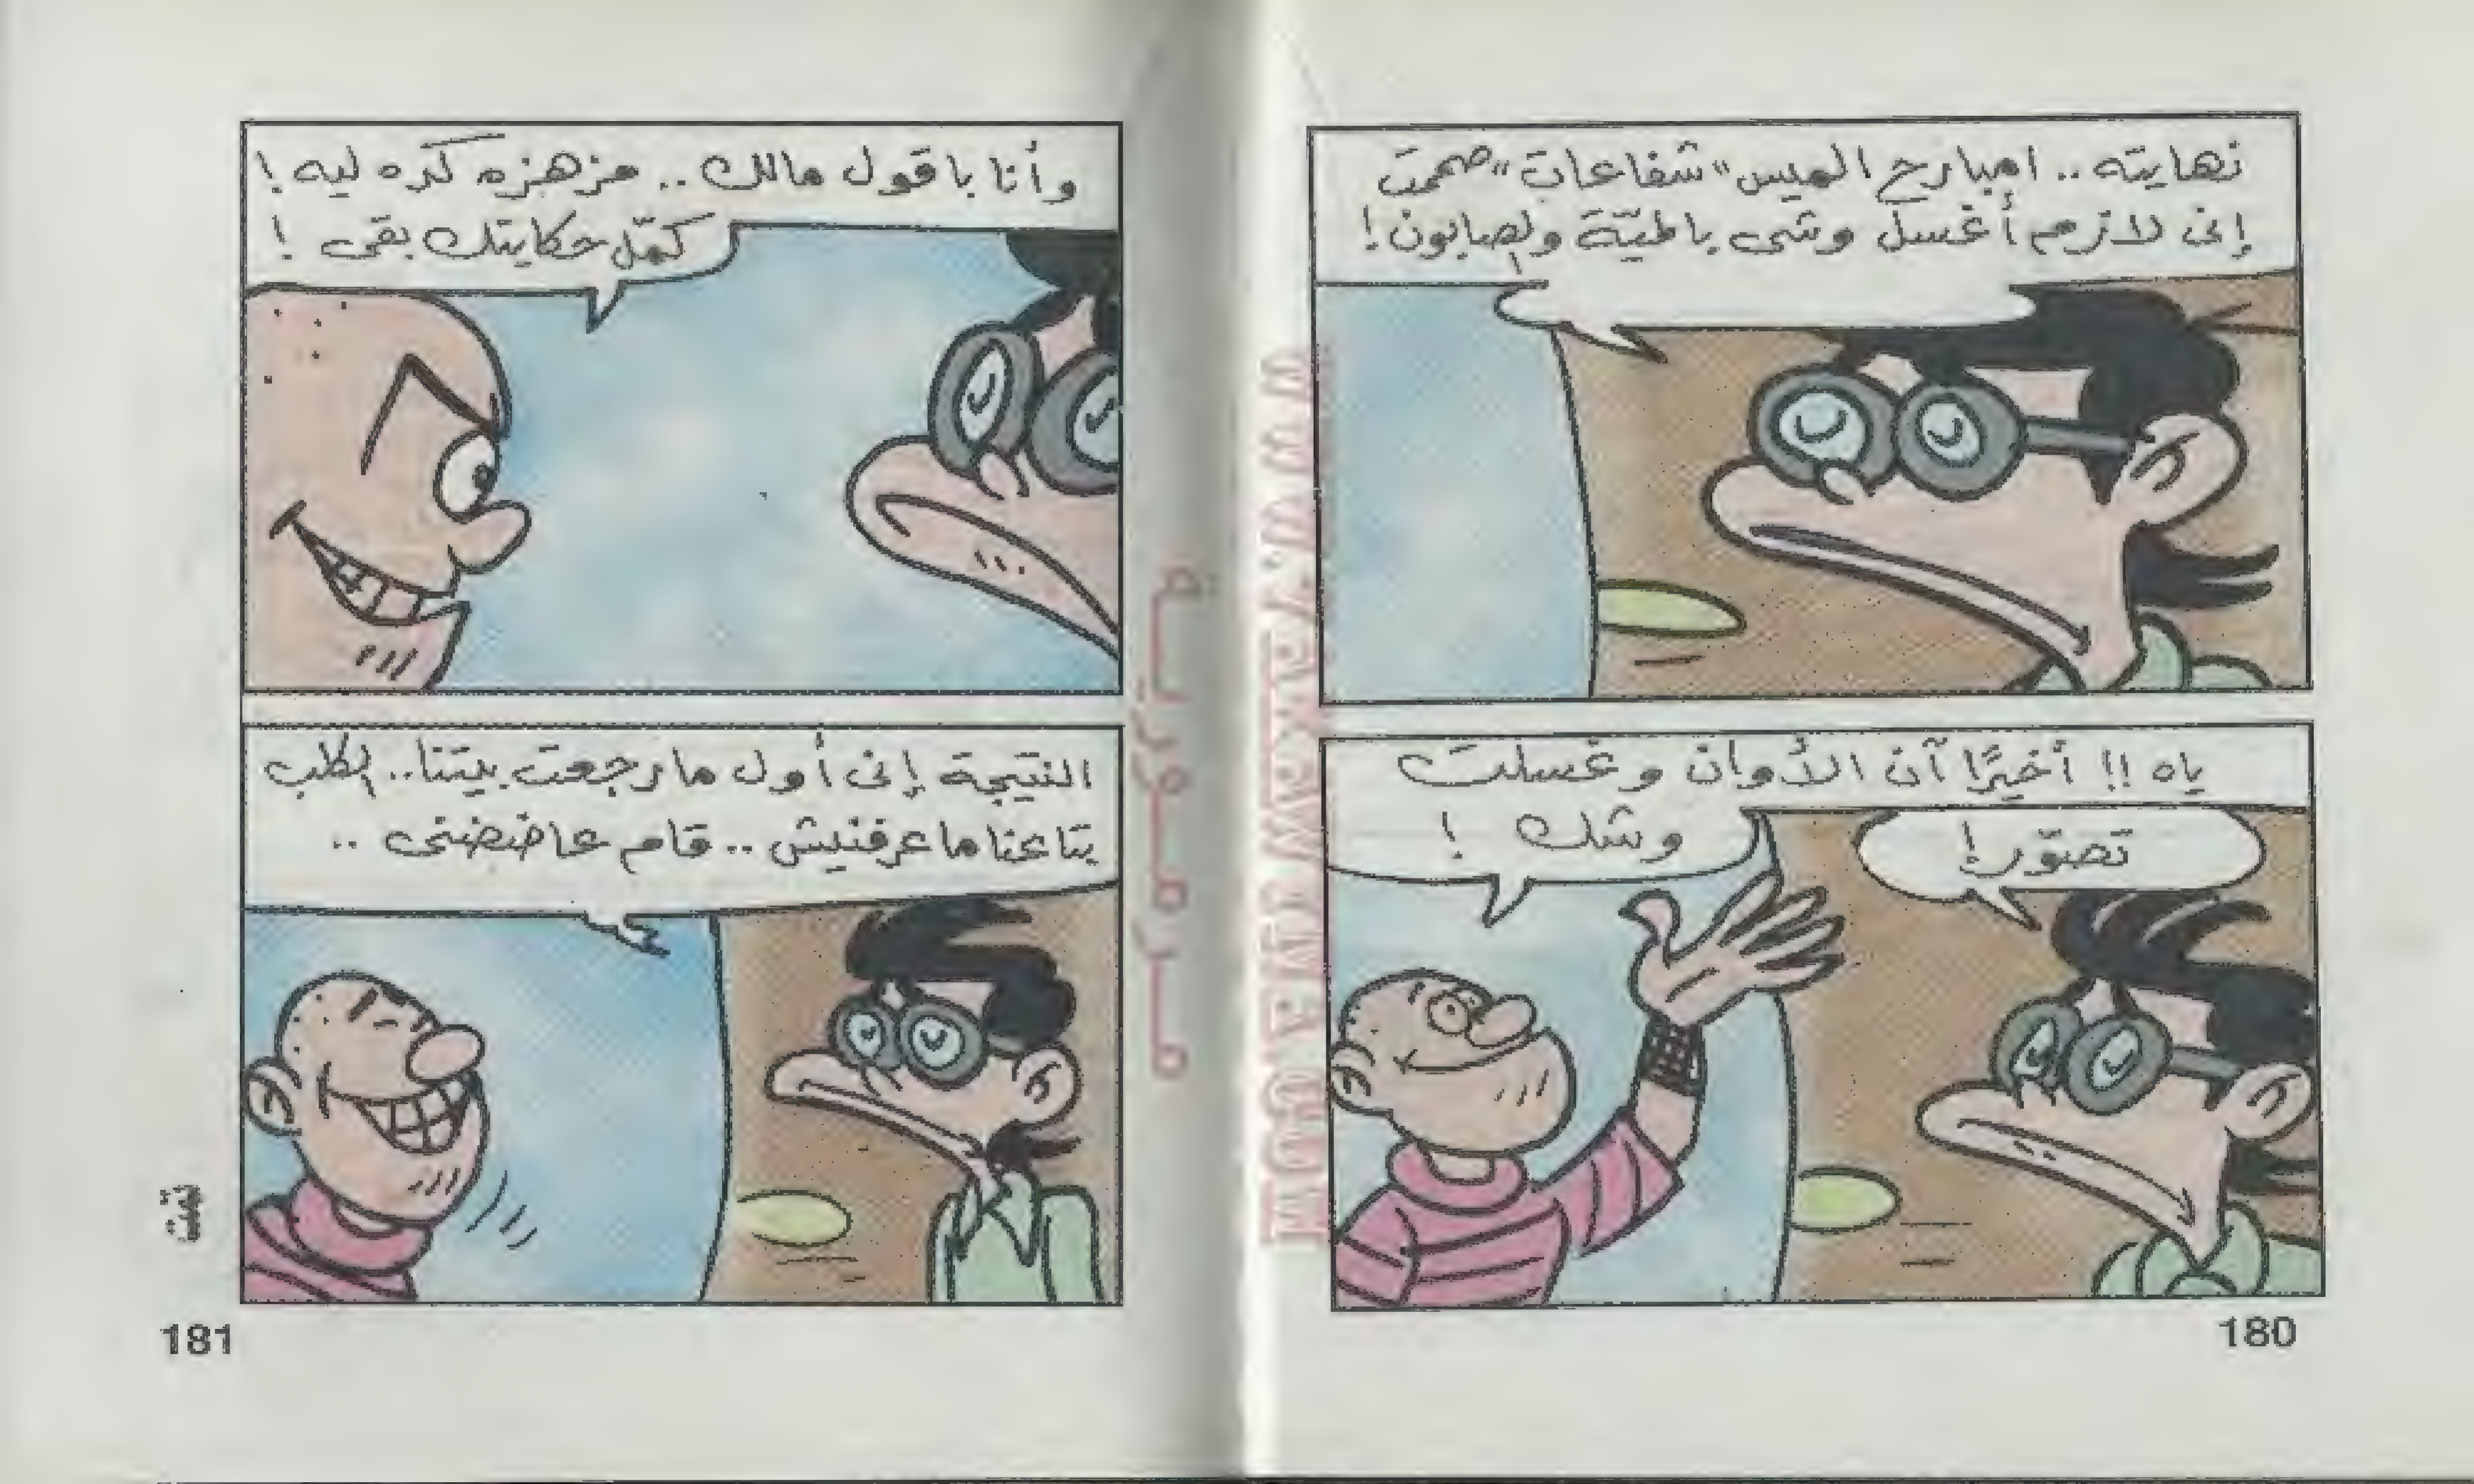 نهايته .. امبارح الميس "شفاعات" صممت
إنى لازم أغسل وشى بالميّة والصابون!
تصوّر!
ياه !! أخيرًا آن الأوان وغسلت
وشك !
180
وأنا باقول مالك .. مزهزه كده ليه !
كمّل حكايتك بقى !
النتيجة إنى أول مارجعت بيتنا.. الكلب
بتاعنا ماعرفنيش .. قام عاضضنى ..
تمت
181